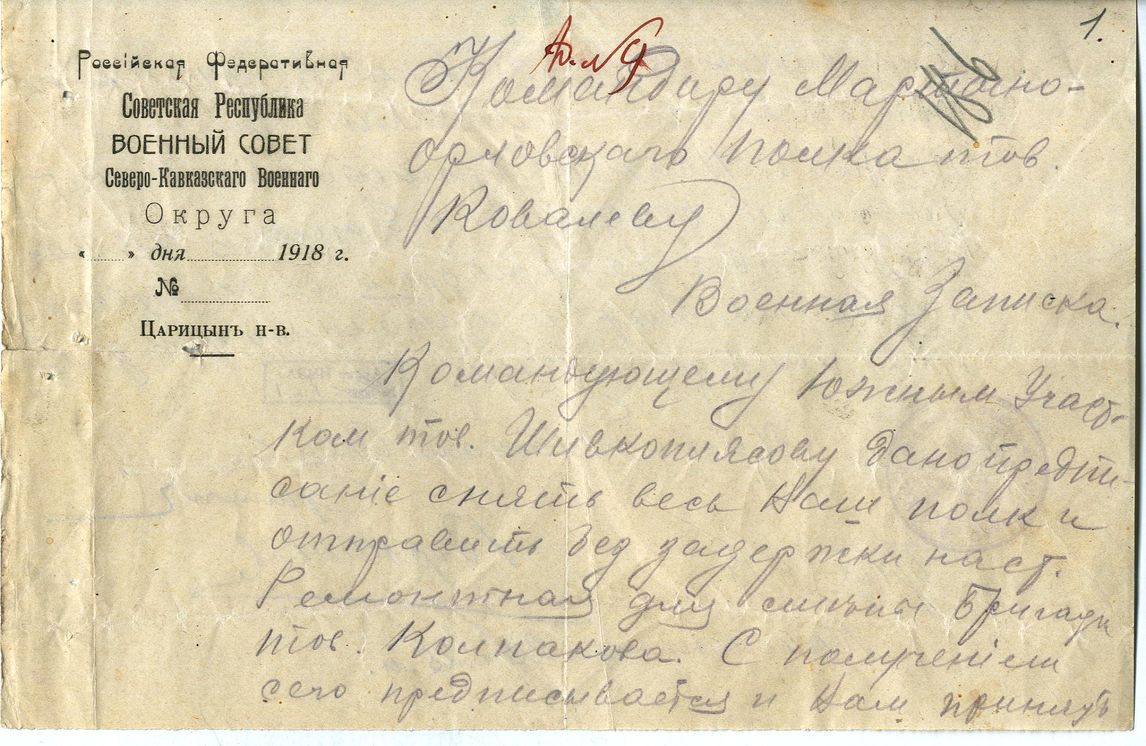 1.
Россійская Федеративная
Советская Республика
ВОЕННЫЙ СОВЕТ
Северо-Кавказскаго Военнаго
Округа
« » дня 1918 г.
№
Царицынъ н-в.
Командиру Мартыно-
орловского полка тов.
Ковалеву
Военная Записка.
Командующему Южным Участ-
ком тов. Шевкоплясову Дано предпи-
саніе снять весь Ваш полк и
отправить без задержки на ст.
Ремонтная для смены Бригады
тов. Колпакова. С получением
сего предписывается и Вам принять